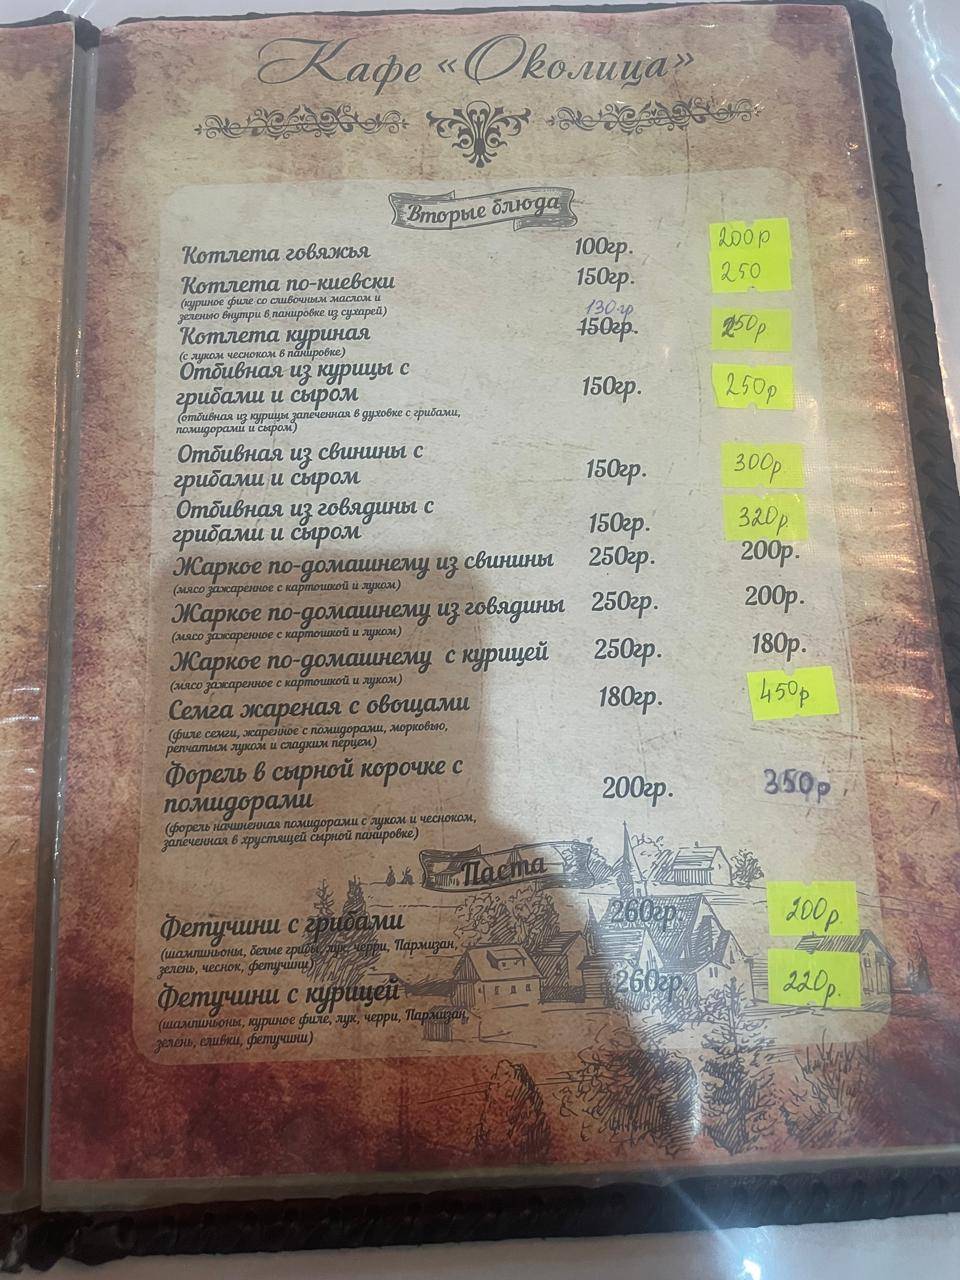 Кафе «Околица»
Вторые блюда
Котлета говяжья 100гр. 200р
Котлета по-киевски 150гр. 250
(куриное филе со сливочным маслом и
зеленью внутри в панировке из сухарей)
130гр
Котлета куриная 150гр. 250р
(с луком чесноком в панировке)
Отбивная из курицы с
грибами и сыром 150гр. 250р
(отбивная из курицы запеченная в духовке с грибами,
помидорами и сыром)
Отбивная из свинины с
грибами и сыром 150гр. 300р
Отбивная из говядины с
грибами и сыром 150гр. 320р.
Жаркое по-домашнему из свинины 250гр. 200р.
(мясо зажаренное с картошкой и луком)
Жаркое по-домашнему из говядины 250гр. 200р.
(мясо зажаренное с картошкой и луком)
Жаркое по-домашнему с курицей 250гр. 180р.
(мясо зажаренное с картошкой и луком)
Семга жареная с овощами 180гр. 450р
(филе семги, жаренное с помидорами, морковью,
репчатым луком и сладким перцем)
Форель в сырной корочке с
помидорами 200гр. 350р
(форель начиненная помидорами с луком и чесноком,
запеченная в хрустящей сырной панировке)
Паста
Фетучини с грибами 260гр. 200р.
(шампиньоны, белые грибы, лук, черри, Пармизан,
зелень, чеснок, фетучини)
Фетучини с курицей 260гр. 220р.
(шампиньоны, куриное филе, лук, черри, Пармизан,
зелень, сливки, фетучини)